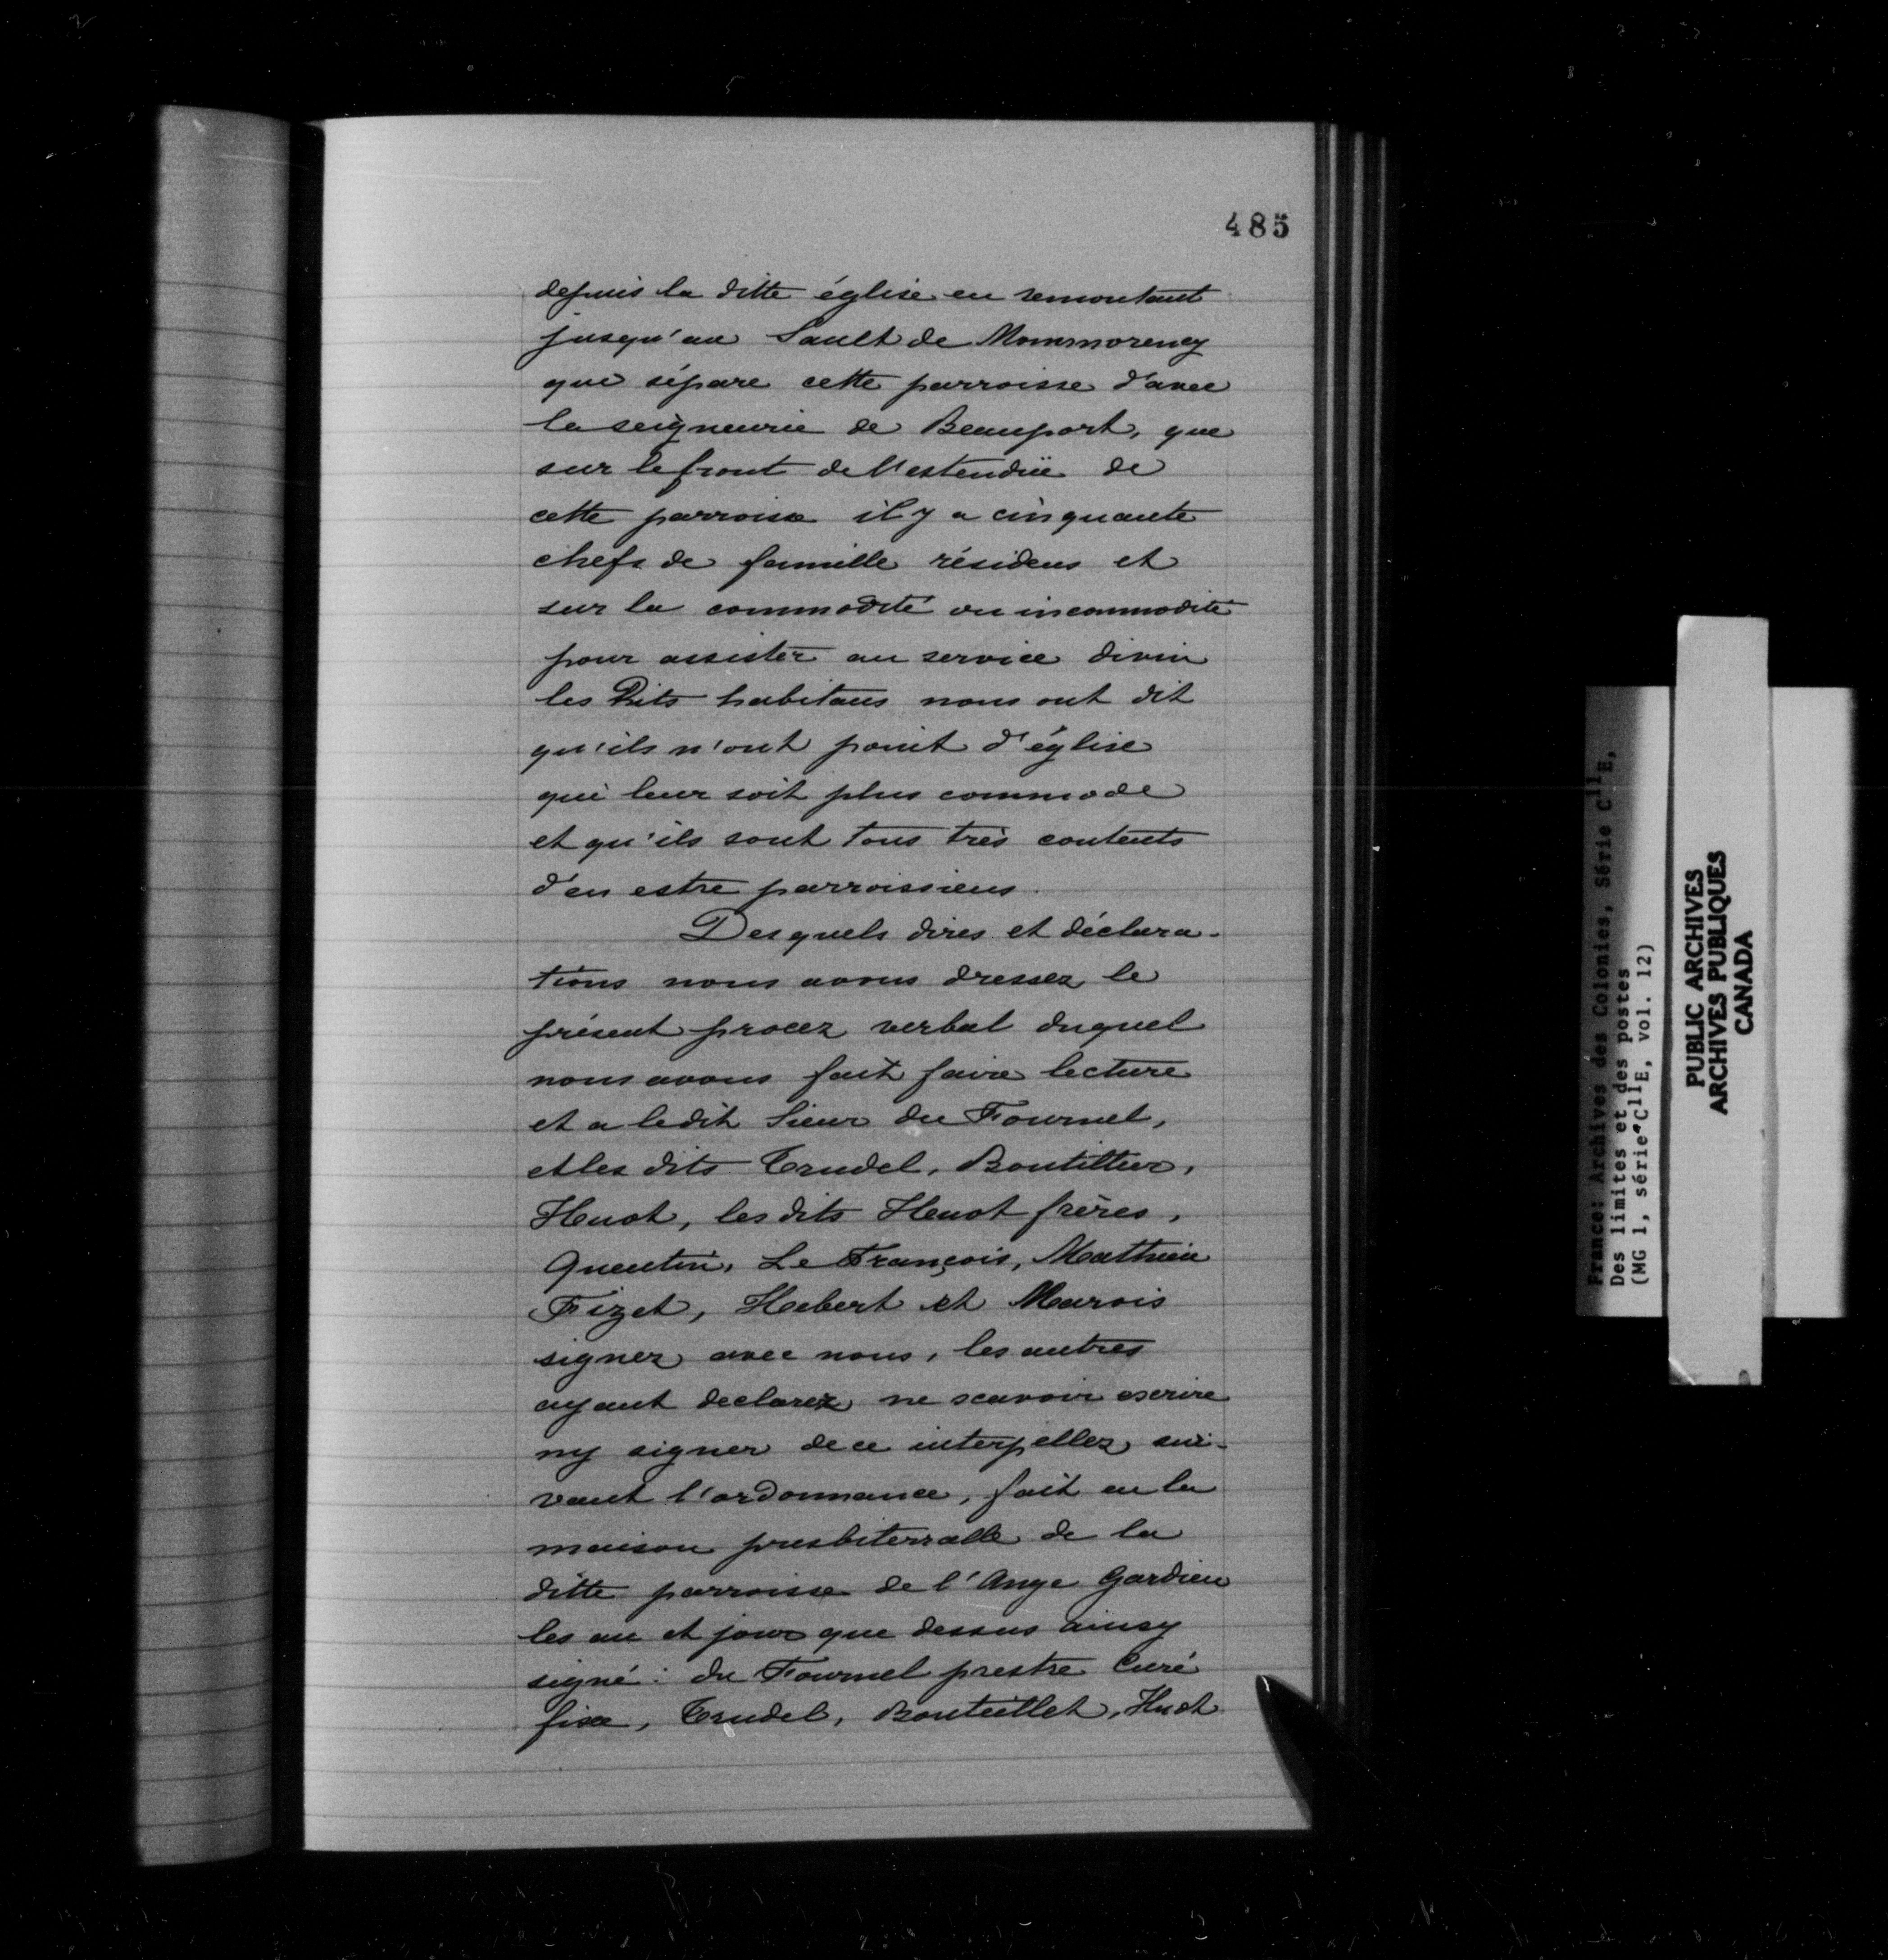 485
depuis la ditte église en remontant
jusqu'au Sault de Mommorency
que sépare cette parroisse d'avec
la seigneurie de Beauport, que
sur le front de l'estendüe de
cette parroisse il y a cinquante
chefs de famille résidens et
sur la commodité ou incommodité
pour assister au service divin
les Dits habitans nous ont dit
qu'ils n'ont point d'église
qui leur soit plus commode
et qu'ils sont tous très contents
d'en estre parroissiens.
Desquels dires et déclara-
tions nous avons dressez le
présent procez verbal duquel
nous avons fait faire lecture
et a ledit Sieur du Fournel,
et les dits Trudel, Boutillier,
Huot, les dits Huot frères,
Quentin, Le François, Mathieu
Fizet, Hebert et Marois
signez avec nous, les autres
ayant declarez ne scavoir escrire
ny signer de ce interpellez sui-
vant l'ordonnance, fait en la
maison presbiterralle de la
ditte parroisse de l'Ange Gardien
les an et jour que dessus ainsy
signé: du Fournel prestre Curé
fixe, Trudel, Bouteillet, Huot
France: Archives des Colonies, Série C11E,
Des limites et des postes
(MG 1, série C11E, vol. 12)
PUBLIC ARCHIVES
ARCHIVES PUBLIQUES
CANADA